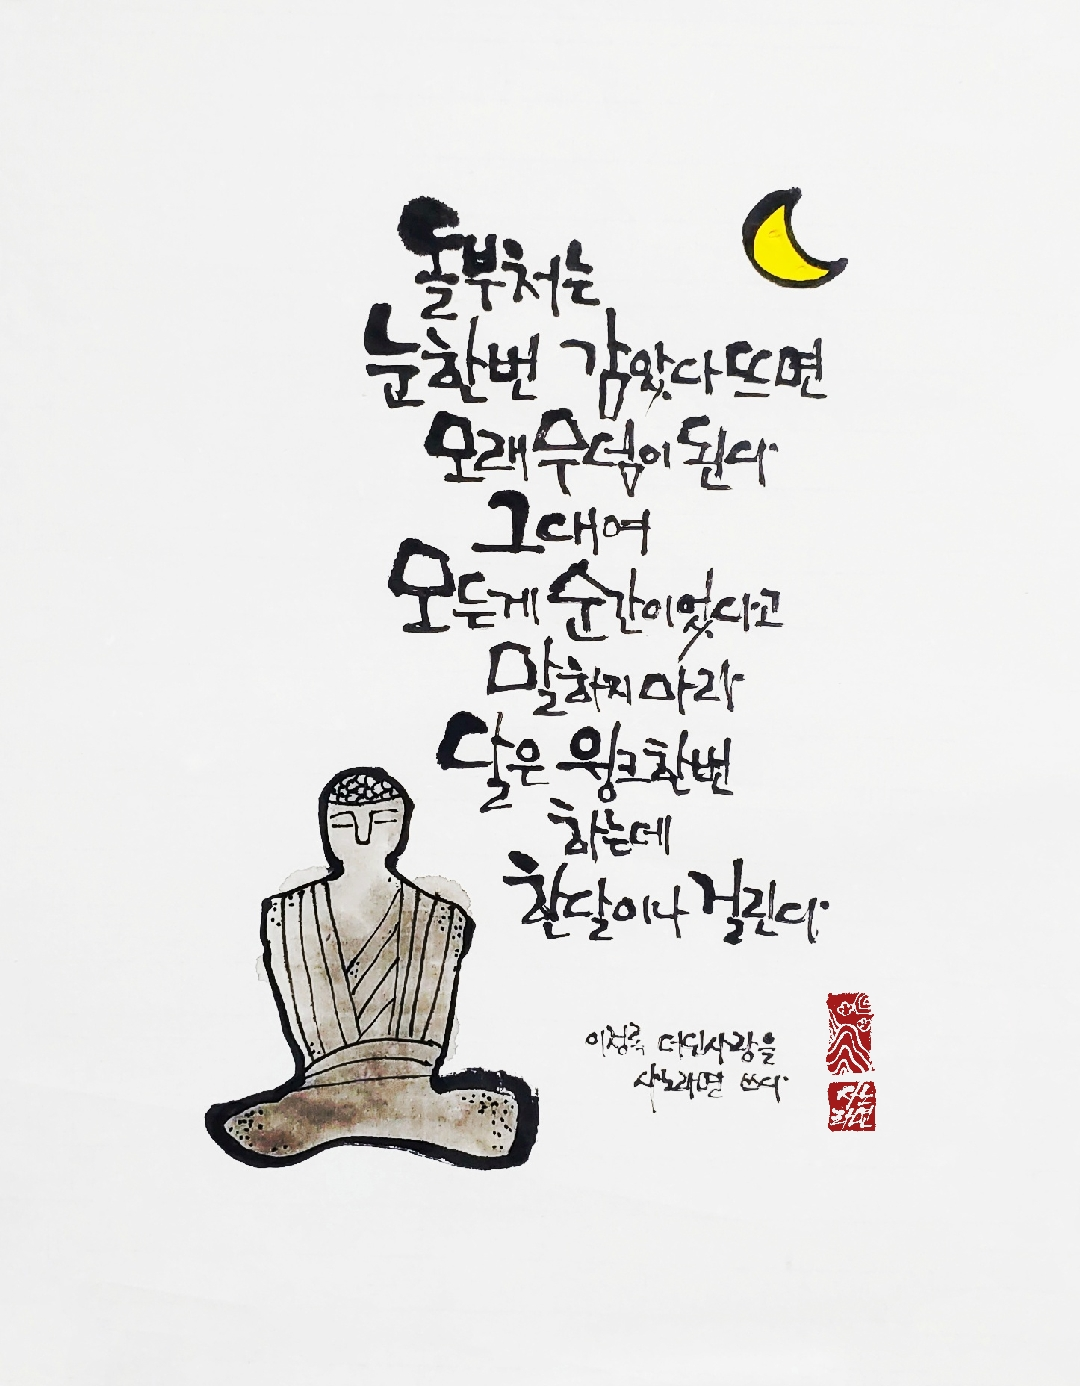 돌부처는
눈한번 감았다 뜨면
모래무덤이 된다
그대여
모든게 순간이었다고
말하지 마라
달은 윙크한번
하는데
한달이나 걸린다
이정록 더딘사랑을
사노라면 쓰다